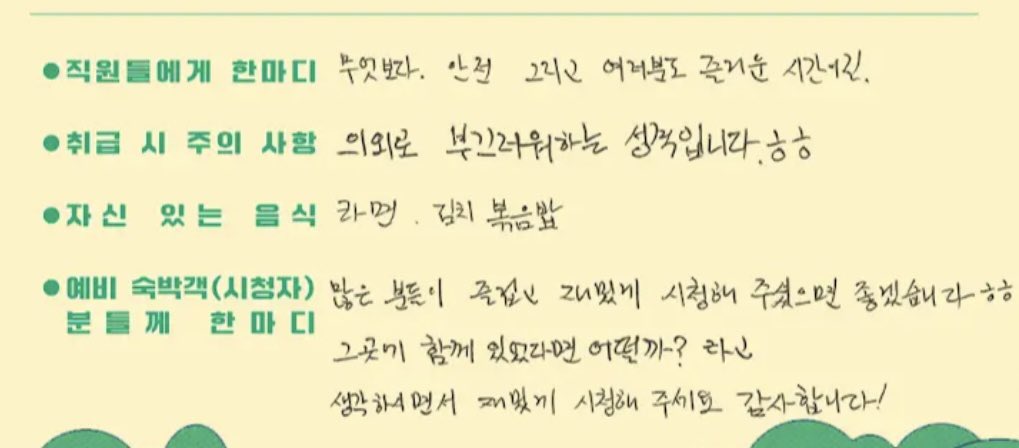 ●직원들에게 한마디 무엇보다. 안전 그리고 여러분도 즐거운 시간이길.
●취급 시 주의 사항 의외로 부끄러워하는 성격입니다.ㅎㅎ
●자신 있는 음식 라면. 김치 볶음밥
●예비 숙박객(시청자) 많은 분들이 즐겁고 재밌게 시청해 주셨으면 좋겠습니다ㅎㅎ
분들께 한마디 그곳에 함께 있었다면 어떨까? 라고
생각하시면서 재밌게 시청해 주세요 감사합니다!